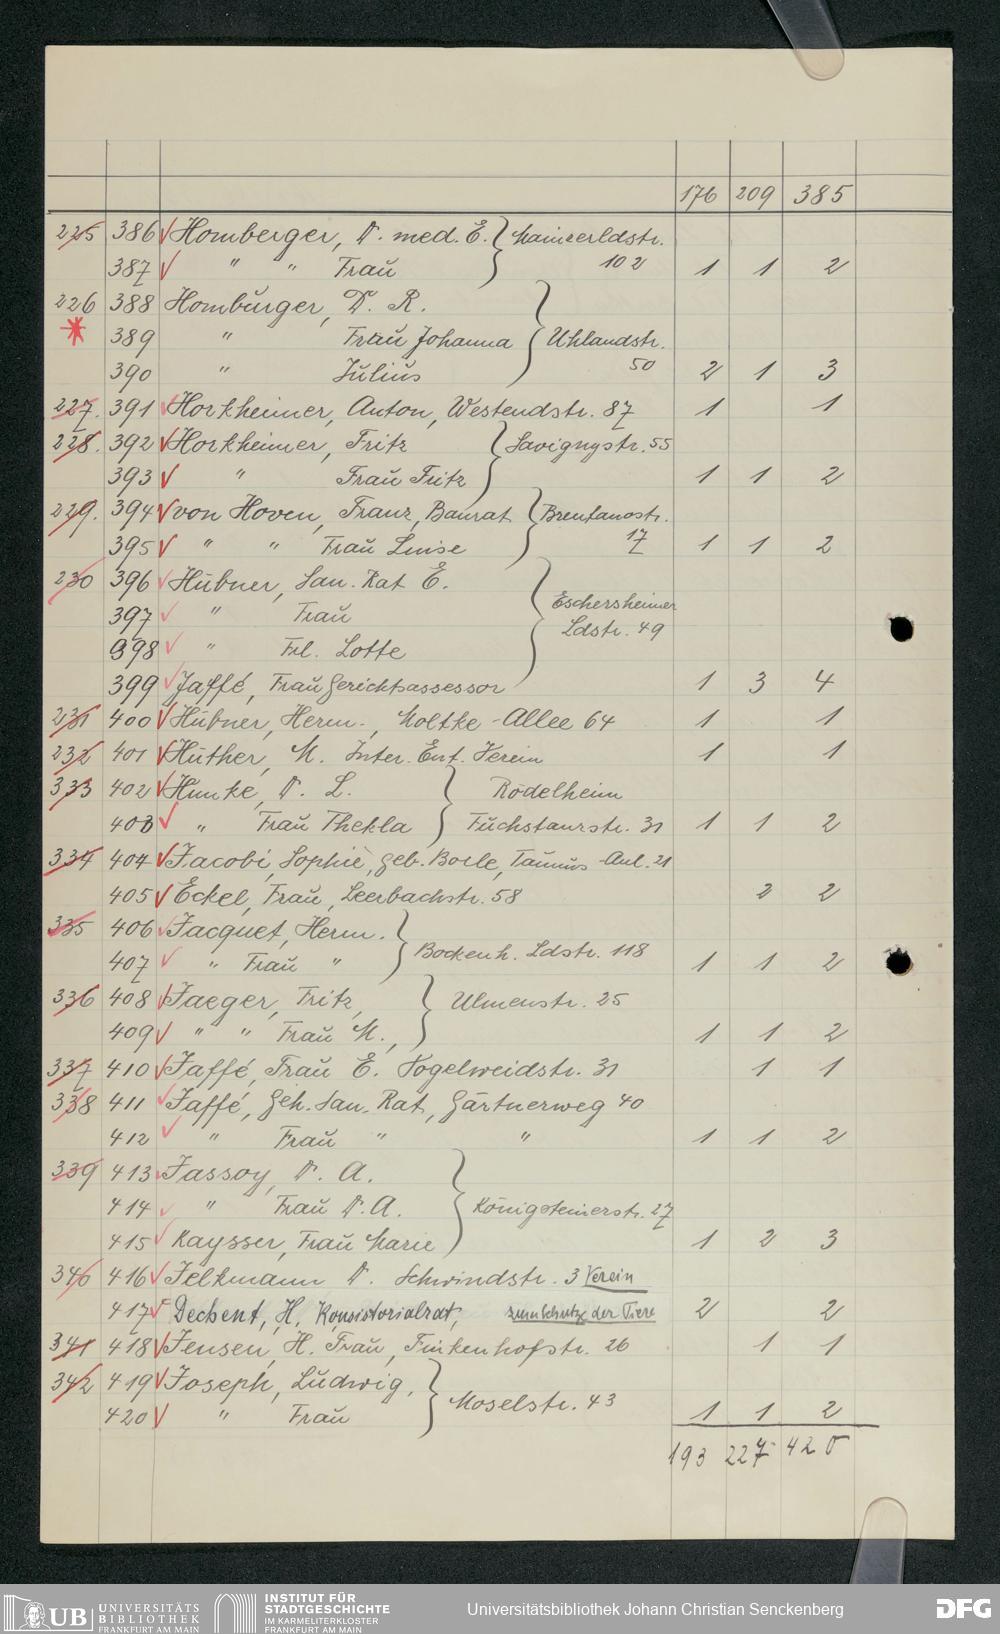 176 209 385
225 386 Homberger, Dr. med. E. Mainzerldstr.
387 " " Frau 102 1 1 2
226 388 Homburger, Dr. R.
389 " Frau Johanna Uhlandstr.
390 " Julius 50 2 1 3
227. 391 Horkheimer, Anton, Westendstr. 87 1 1
228. 392 Horkheimer, Fritz Savignystr. 55
393 " Frau Fritz 1 1 2
229. 394 von Hoven, Franz, Baurat Brentanostr.
395 " " Frau Luise 17 1 1 2
230 396 Hübner, San. Rat E.
397 " Frau Eschersheimer
398 " Frl. Lotte Ldstr. 49
399 Jaffé, Frau Gerichtsassessor 1 3 4
231 400 Hübner, Herm., Moltke-Allee 64 1 1
232 401 Hüther, M. Inter. Ent. Verein 1 1
333 402 Hunke, Dr. L. Rödelheim
403 " Frau Thekla Fuchstanzstr. 31 1 1 2
334 404 Jacobi, Sophie, geb. Bolle, Taunus-Anl. 21
405 Eckel, Frau, Leerbachstr. 58 2 2
335 406 Jacquet, Herm.
407 " Frau " Bockenh. Ldstr. 118 1 1 2
336 408 Jaeger, Fritz, Ulmenstr. 25
409 " " Frau M., 1 1 2
337 410 Jaffé, Frau E. Vogelweidstr. 31 1 1
338 411 Jaffé, Geh. San. Rat, Gärtnerweg 40
412 " Frau " " 1 1 2
339 413 Jassoy, Dr. A.
414 " Frau Dr. A. Königsteinerstr. 27
415 Kaysser, Frau Marie 1 2 3
340 416 Jelkmann Dr. Schwindstr. 3 Verein
417 Dechent, H. Konsistorialrat, zum Schutze der Tiere 2 2
341 418 Jensen, H. Frau, Finkenhofstr. 26 1 1
342 419 Joseph, Ludwig, Moselstr. 43
420 " Frau 1 1 2
193 227 420
UB UNIVERSITÄTS BIBLIOTHEK FRANKFURT AM MAIN
INSTITUT FÜR STADTGESCHICHTE IM KARMELITERKLOSTER FRANKFURT AM MAIN
Universitätsbibliothek Johann Christian Senckenberg
DFG